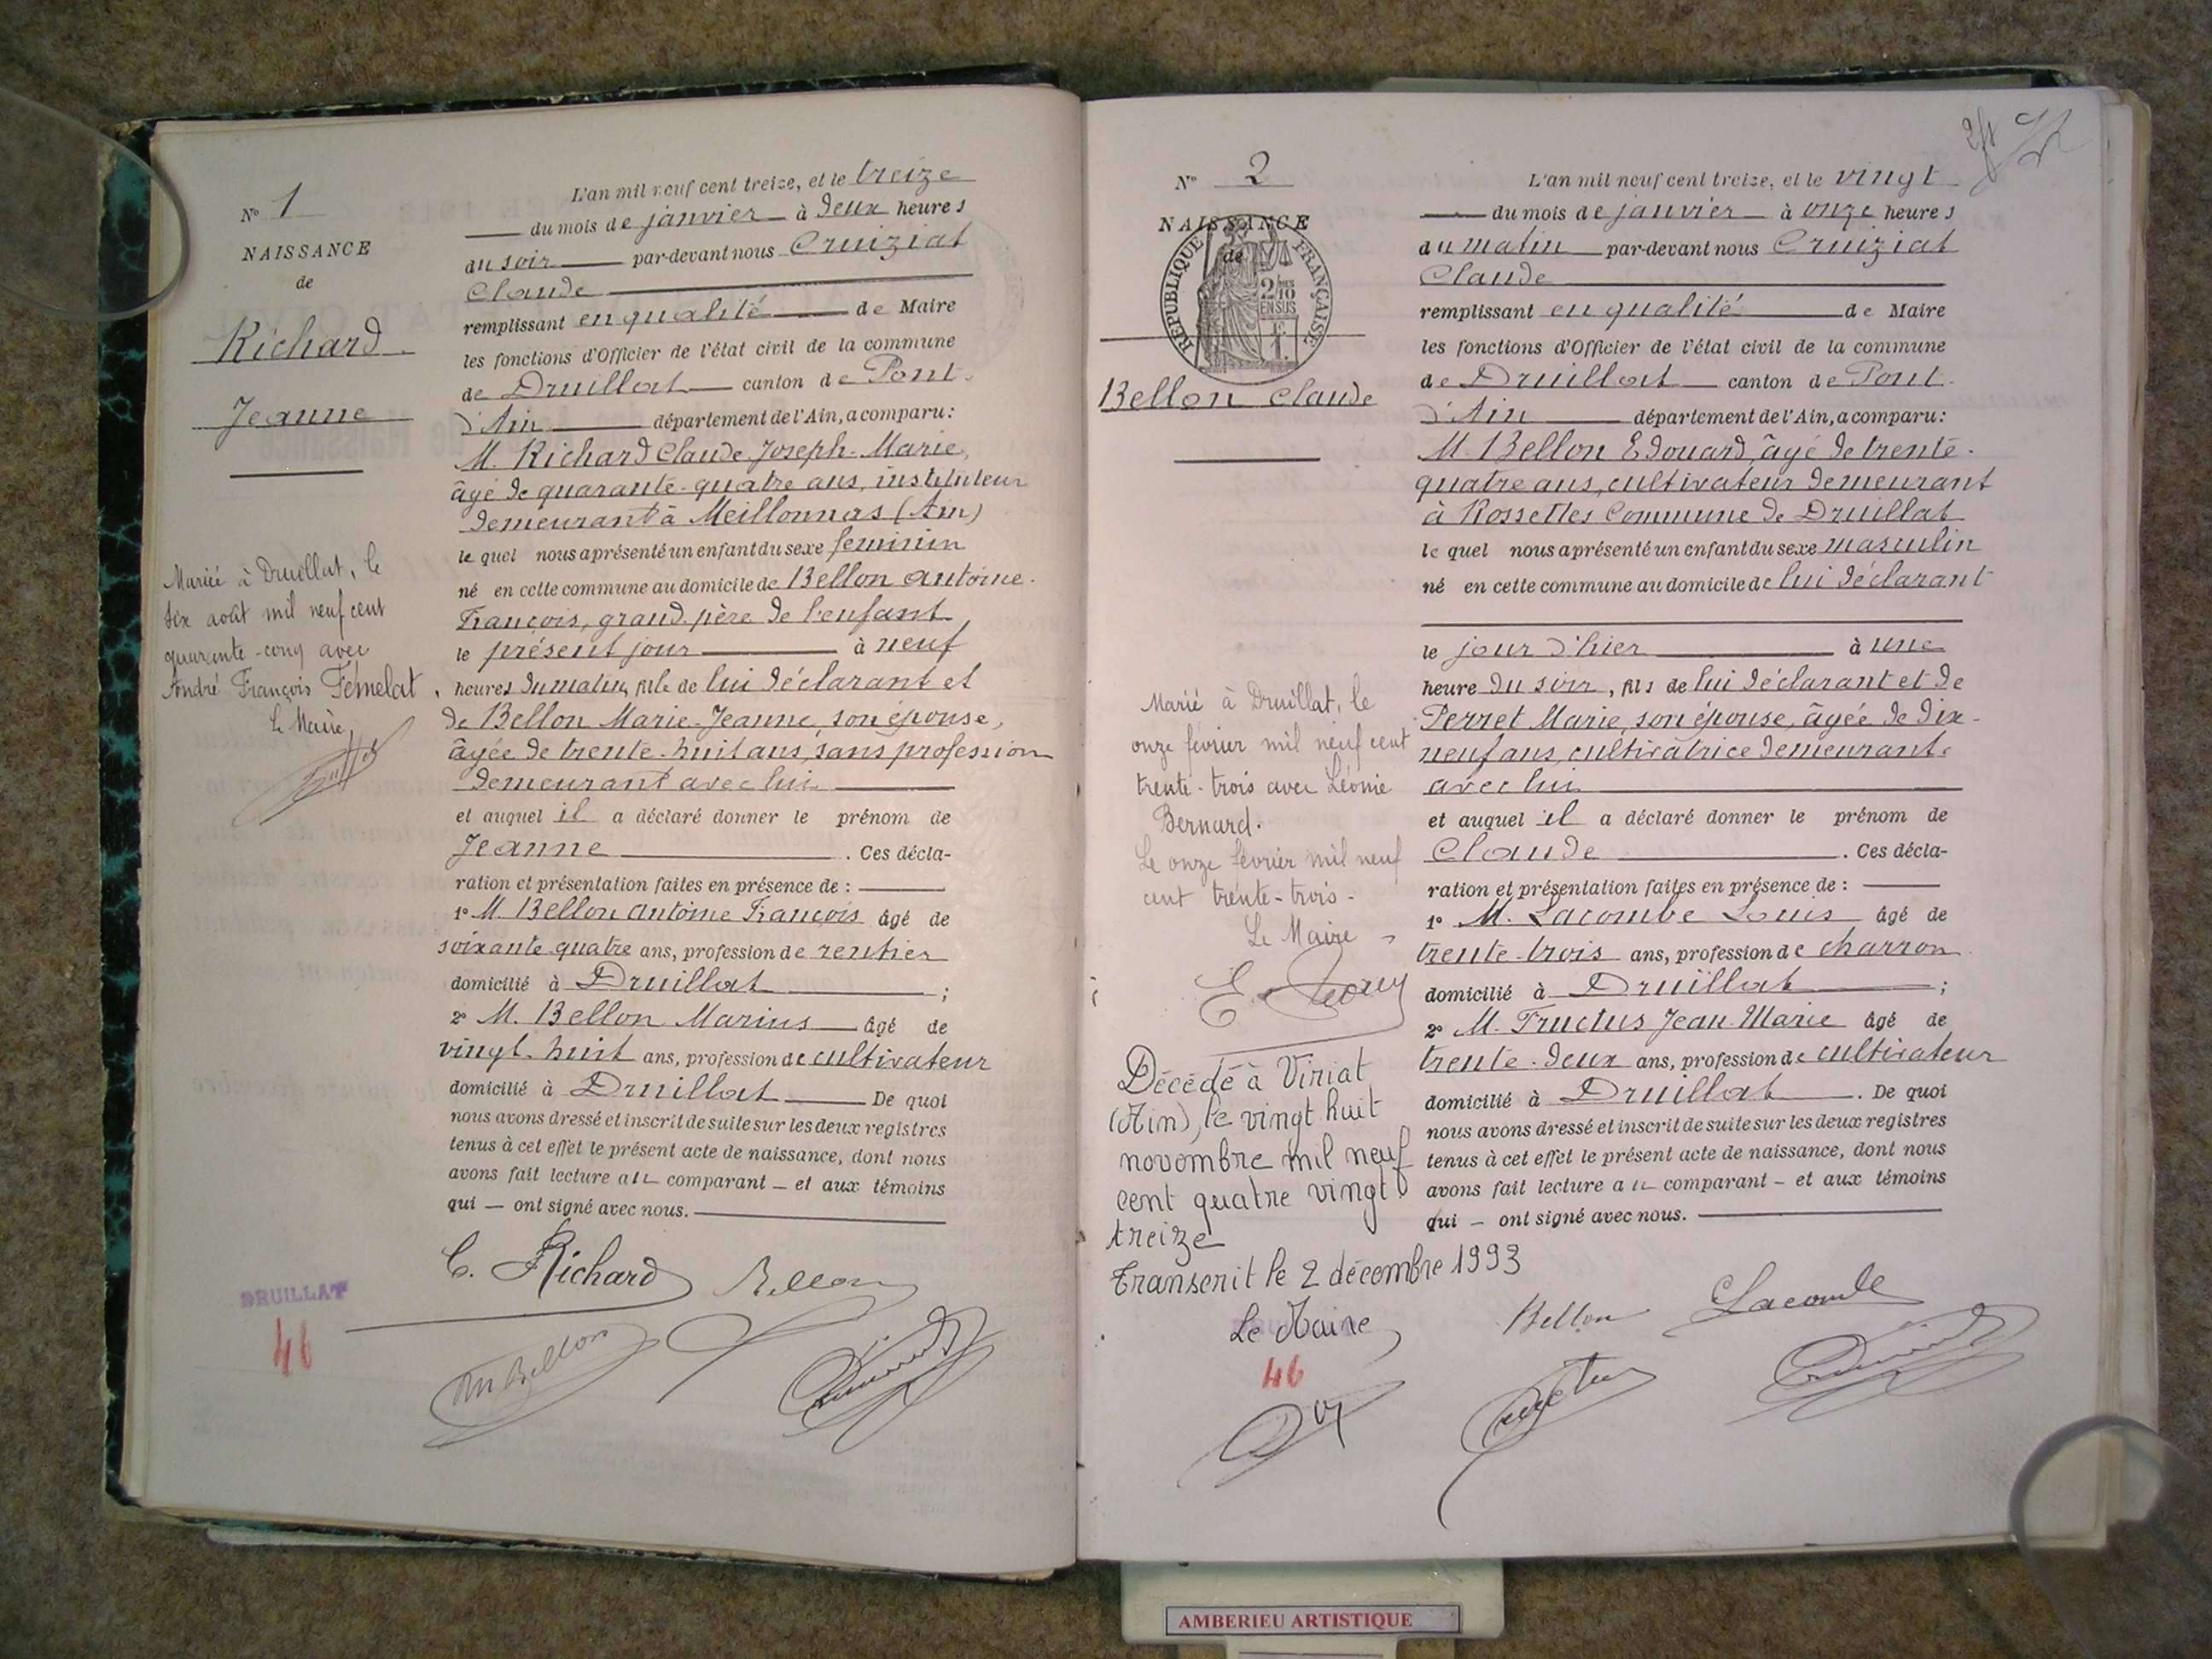 N° 1
NAISSANCE
de
Richard
Jeanne
Mariée à Druillat, le
six août mil neuf cent
quarante-cinq avec
André François Fémelat.
Le Maire,
DRUILLAT
46
L'an mil neuf cent treize, et le treize
du mois de janvier à deux heures
du soir par-devant nous Cruiziat
Claude
remplissant en qualité de Maire
les fonctions d'Officier de l'état civil de la commune
de Druillat canton de Pont-
d'Ain département de l'Ain, a comparu:
M. Richard Claude-Joseph-Marie,
âgé de quarante-quatre ans, instituteur
demeurant à Meillonnas (Ain)
lequel nous a présenté un enfant du sexe féminin
né en cette commune au domicile de Bellon Antoine-
François, grand-père de l'enfant
le présent jour à neuf
heures du matin, fille de lui déclarant et
de Bellon Marie-Jeanne, son épouse,
âgée de trente-huit ans, sans profession
demeurant avec lui
et auquel il a déclaré donner le prénom de
Jeanne. Ces décla-
ration et présentation faites en présence de :
1° M. Bellon Antoine François âgé de
soixante-quatre ans, profession de rentier
domicilié à Druillat ;
2° M. Bellon Marius âgé de
vingt-huit ans, profession de cultivateur
domicilié à Druillat De quoi
nous avons dressé et inscrit de suite sur les deux registres
tenus à cet effet le présent acte de naissance, dont nous
avons fait lecture au comparant – et aux témoins
qui – ont signé avec nous.
C. Richard Bellon
M Bellon
N° 2
NAISSANCE
de
RÉPUBLIQUE FRANÇAISE
2/10
EN SUS
Bellon Claude
Marié à Druillat, le
onze février mil neuf cent
trente-trois avec Léonie
Bernard.
Le onze février mil neuf
cent trente-trois.
Le Maire
Décédé à Viriat
(Ain), le vingt huit
novembre mil neuf
cent quatre vingt
treize
Transcrit le 2 décembre 1993
Le Maire,
46
L'an mil neuf cent treize, et le vingt
du mois de janvier à onze heures
du matin par-devant nous Cruiziat
Claude
remplissant en qualité de Maire
les fonctions d'Officier de l'état civil de la commune
de Druillat canton de Pont-
d'Ain département de l'Ain, a comparu:
M. Bellon Edouard, âgé de trente-
quatre ans, cultivateur demeurant
à Rossettes Commune de Druillat
lequel nous a présenté un enfant du sexe masculin
né en cette commune au domicile de lui déclarant
le jour d'hier à une
heure du soir, fils de lui déclarant et de
Perret Marie, son épouse, âgée de dix-
neuf ans, cultivatrice demeurant
avec lui
et auquel il a déclaré donner le prénom de
Claude. Ces décla-
ration et présentation faites en présence de :
1° M. Lacombe Louis âgé de
trente-trois ans, profession de charron
domicilié à Druillat ;
2° M. Fructus Jean-Marie âgé de
trente-deux ans, profession de cultivateur
domicilié à Druillat. De quoi
nous avons dressé et inscrit de suite sur les deux registres
tenus à cet effet le présent acte de naissance, dont nous
avons fait lecture au comparant – et aux témoins
qui – ont signé avec nous.
Bellon Lacombe
AMBERIEU ARTISTIQUE